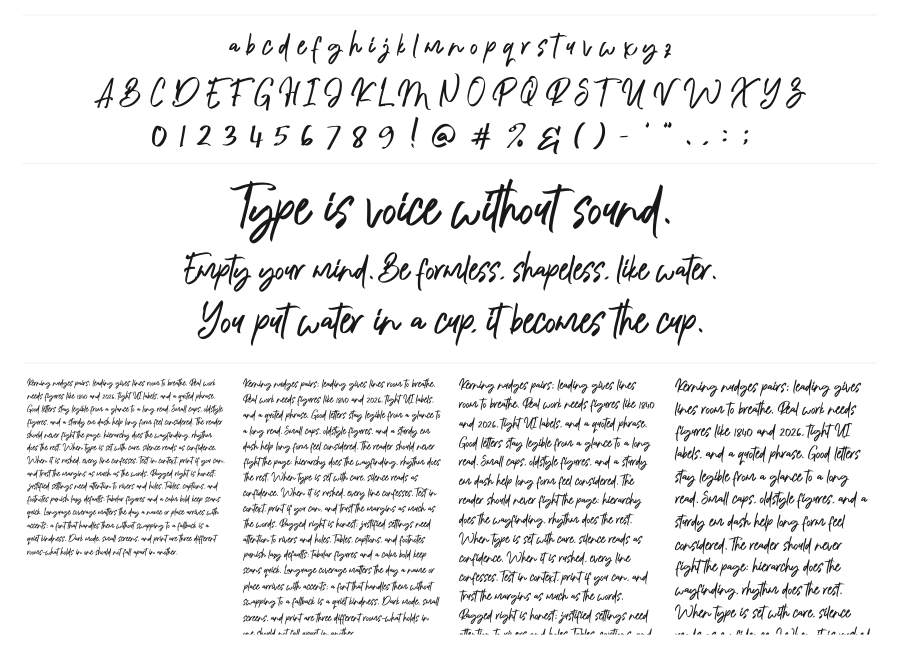 a b c d e f g h i j k l m n o p q r s t u v w x y z
A B C D E F G H I J K L M N O P Q R S T U V W X Y Z
0 1 2 3 4 5 6 7 8 9 ! @ # % & ( ) - ' " . , : ;
Type is voice without sound.
Empty your mind. Be formless, shapeless, like water.
You put water in a cup, it becomes the cup.
Kerning nudges pairs; leading gives lines room to breathe. Real work
needs figures like 1840 and 2026, tight UI labels, and a quoted phrase.
Good letters stay legible from a glance to a long read. Small caps, oldstyle
figures, and a sturdy em dash help long form feel considered. The reader
should never fight the page: hierarchy does the wayfinding, rhythm
does the rest. When type is set with care, silence reads as confidence.
When it is rushed, every line confesses. Test in context, print if you can,
and trust the margins as much as the words. Ragged right is honest;
justified settings need attention to rivers and holes. Tables, captions, and
footnotes punish lazy defaults: tabular figures and a calm bold keep scans
quick. Language coverage matters the day a name or place arrives with
accents: a font that handles them without swapping to a fallback is a
quiet kindness. Dark mode, small screens, and print are three different
rooms-what holds in one should not fall apart in another.
Kerning nudges pairs; leading gives lines room to breathe.
Real work needs figures like 1840 and 2026, tight UI labels,
and a quoted phrase. Good letters stay legible from a glance to
a long read. Small caps, oldstyle figures, and a sturdy em
dash help long form feel considered. The reader should never
fight the page: hierarchy does the wayfinding, rhythm does
the rest. When type is set with care, silence reads as
confidence. When it is rushed, every line confesses. Test in
context, print if you can, and trust the margins as much as
the words. Ragged right is honest; justified settings need
attention to rivers and holes. Tables, captions, and footnotes
punish lazy defaults: tabular figures and a calm bold keep
scans quick. Language coverage matters the day a name or
place arrives with accents: a font that handles them without
swapping to a fallback is a quiet kindness. Dark mode, small
screens, and print are three different rooms-what holds in
one should not fall apart in another.
Kerning nudges pairs; leading gives lines
room to breathe. Real work needs figures like 1840
and 2026, tight UI labels, and a quoted phrase.
Good letters stay legible from a glance to a long
read. Small caps, oldstyle figures, and a sturdy
em dash help long form feel considered. The
reader should never fight the page: hierarchy
does the wayfinding, rhythm does the rest.
When type is set with care, silence reads as
confidence. When it is rushed, every line
confesses. Test in context, print if you can, and
trust the margins as much as the words.
Ragged right is honest; justified settings need
attention to rivers and holes. Tables, captions, and
Kerning nudges pairs; leading gives
lines room to breathe. Real work needs
figures like 1840 and 2026, tight UI
labels, and a quoted phrase. Good letters
stay legible from a glance to a long
read. Small caps, oldstyle figures, and a
sturdy em dash help long form feel
considered. The reader should never
fight the page: hierarchy does the
wayfinding, rhythm does the rest.
When type is set with care, silence
reads as confidence. When it is rushed,